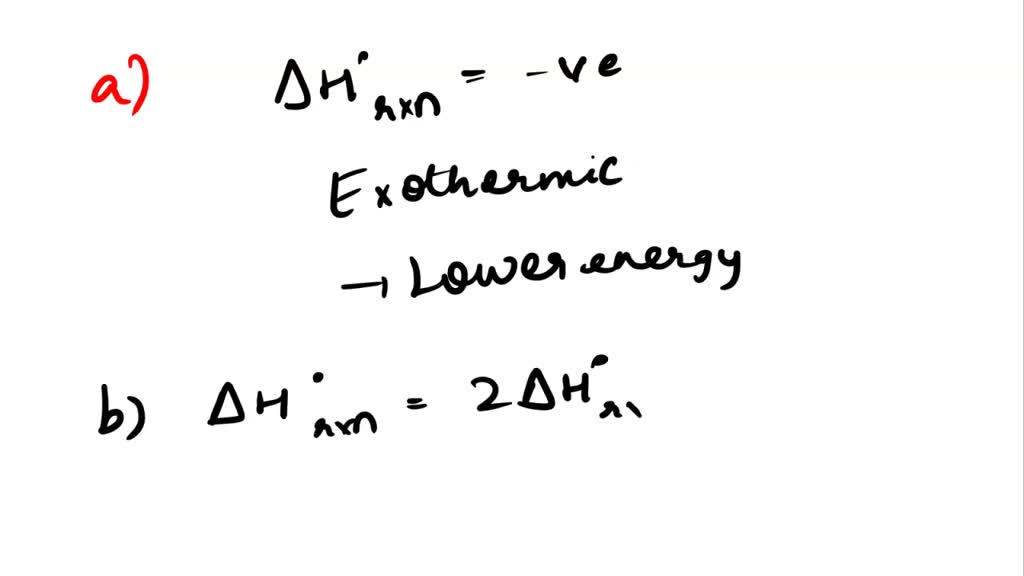 a) ΔH°rxn = -ve
Exothermic
→ Lower energy
b) ΔH°rxn = 2ΔH°rx